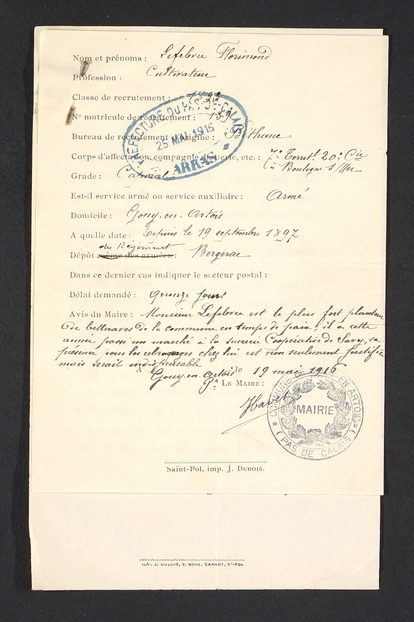 Nom et prénoms : Lefebvre Florimond
Profession : Cultivateur
Classe de recrutement :
Nº matricule de recrutement :
Bureau de recrutement d'origine : Béthune
Corps d'affectation, compagnie, batterie, etc. : 7e Territ. 20e Cie
Boulogne s/Mer
Grade : Caporal
Est-il service armé ou service auxiliaire : Armé
Domicile : Gouy-en-Artois
A quelle date : Depuis le 19 septembre 1897
du Régiment
Dépôt : Bergerac
Dans ce dernier cas indiquer le secteur postal :
Délai demandé : Quinze jours
Avis du Maire : Monsieur Lefebvre est le plus fort planteur
de betteraves de la commune en temps de paix, il a cette
année passé un marché à la sucrerie Coopérative de Savy, sa
présence pour les chez lui est non seulement justifiée
mais serait indispensable
A Gouy-en-Artois le 19 mai 1916
Le Maire :
Havet
PRÉFECTURE DU PAS-DE-CALAIS
25 MAI 1916
ARRAS
COMMUNE DE GOUY EN ARTOIS
MAIRIE
(PAS DE CALAIS)
Saint-Pol, imp. J. Dubois.
Imp. J. Dubois, 2, Boul. Carnot, St-Pol